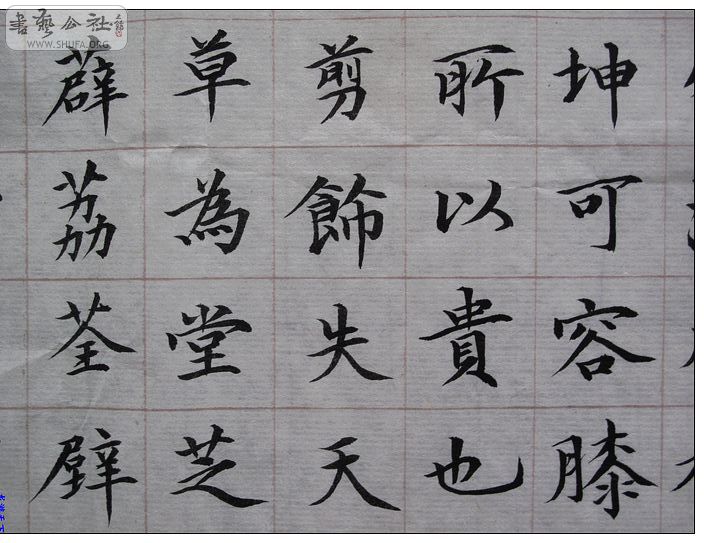 書藝公社
WWW.SHUFA.ORG
坤可容膝
所以貴也
剪飾失天
草為堂芝
薜荔荃壁